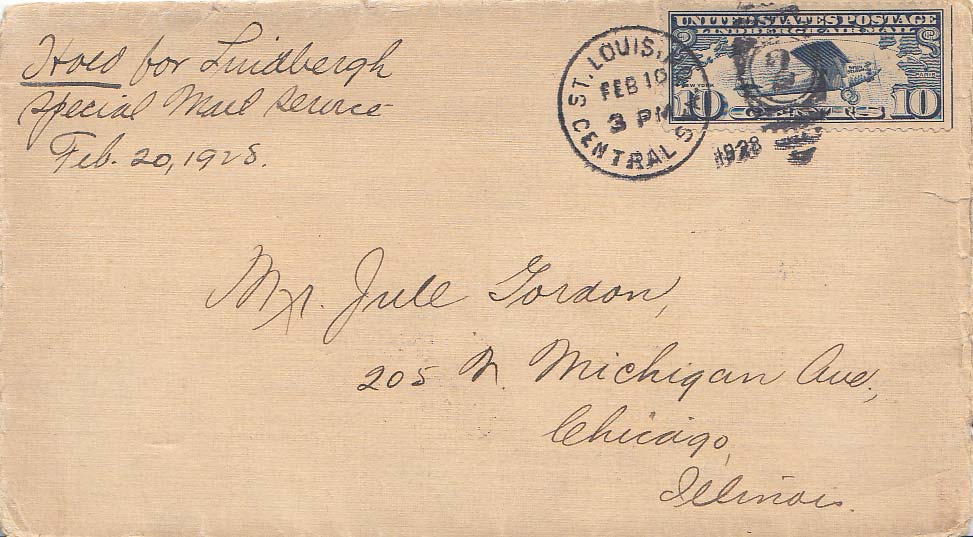 Hold for Lindbergh
Special Mail Service
Feb. 20, 1928.
ST. LOUIS,
FEB 10
3 PM
CENTRAL S
1928
2
UNITED STATES POSTAGE
LINDBERGH AIR MAIL
NEW YORK
PARIS
10 CENTS 10
Mr. Jule Gordon,
205 N. Michigan Ave,
Chicago,
Illinois.